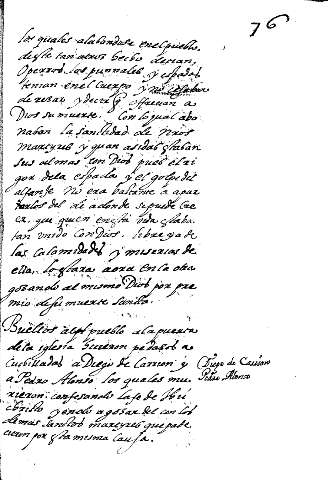 76
los quales alabandose en el pueblo
deste tan atroz hecho decian,
O perros los puñnales y espadas
tenian en el cuerpo y no cesaban
de rezar y decir q̃ ofrecian a
Dios su muerte. Con lo qual abo
naban la santidad de nr̃os
martyres y quan asidas estaban
sus almas con Dios pues el ri
gor de la espada y el golpe del
alfange no era bastante a apar
tarlos del ni adonde se puede ca
er, que quien en esta vida estaba
tan unido con Dios, libre ya de
las calamidades y miserias de
ella, lo estara aora en la otra
gozando al mismo Dios por pre
mio de su muerte
Bueltos al pueblo a la puerta
de la iglesia hicieron pedazos a
cuchilladas a Diego de Carrion y
a Pedro Alonso los quales mu
rieron confesando la fe de
christo yendo a gozar del con los
demas santos martyres que pade
cieron por esta misma causa.
Diego de Carrion
Pedro Alonso